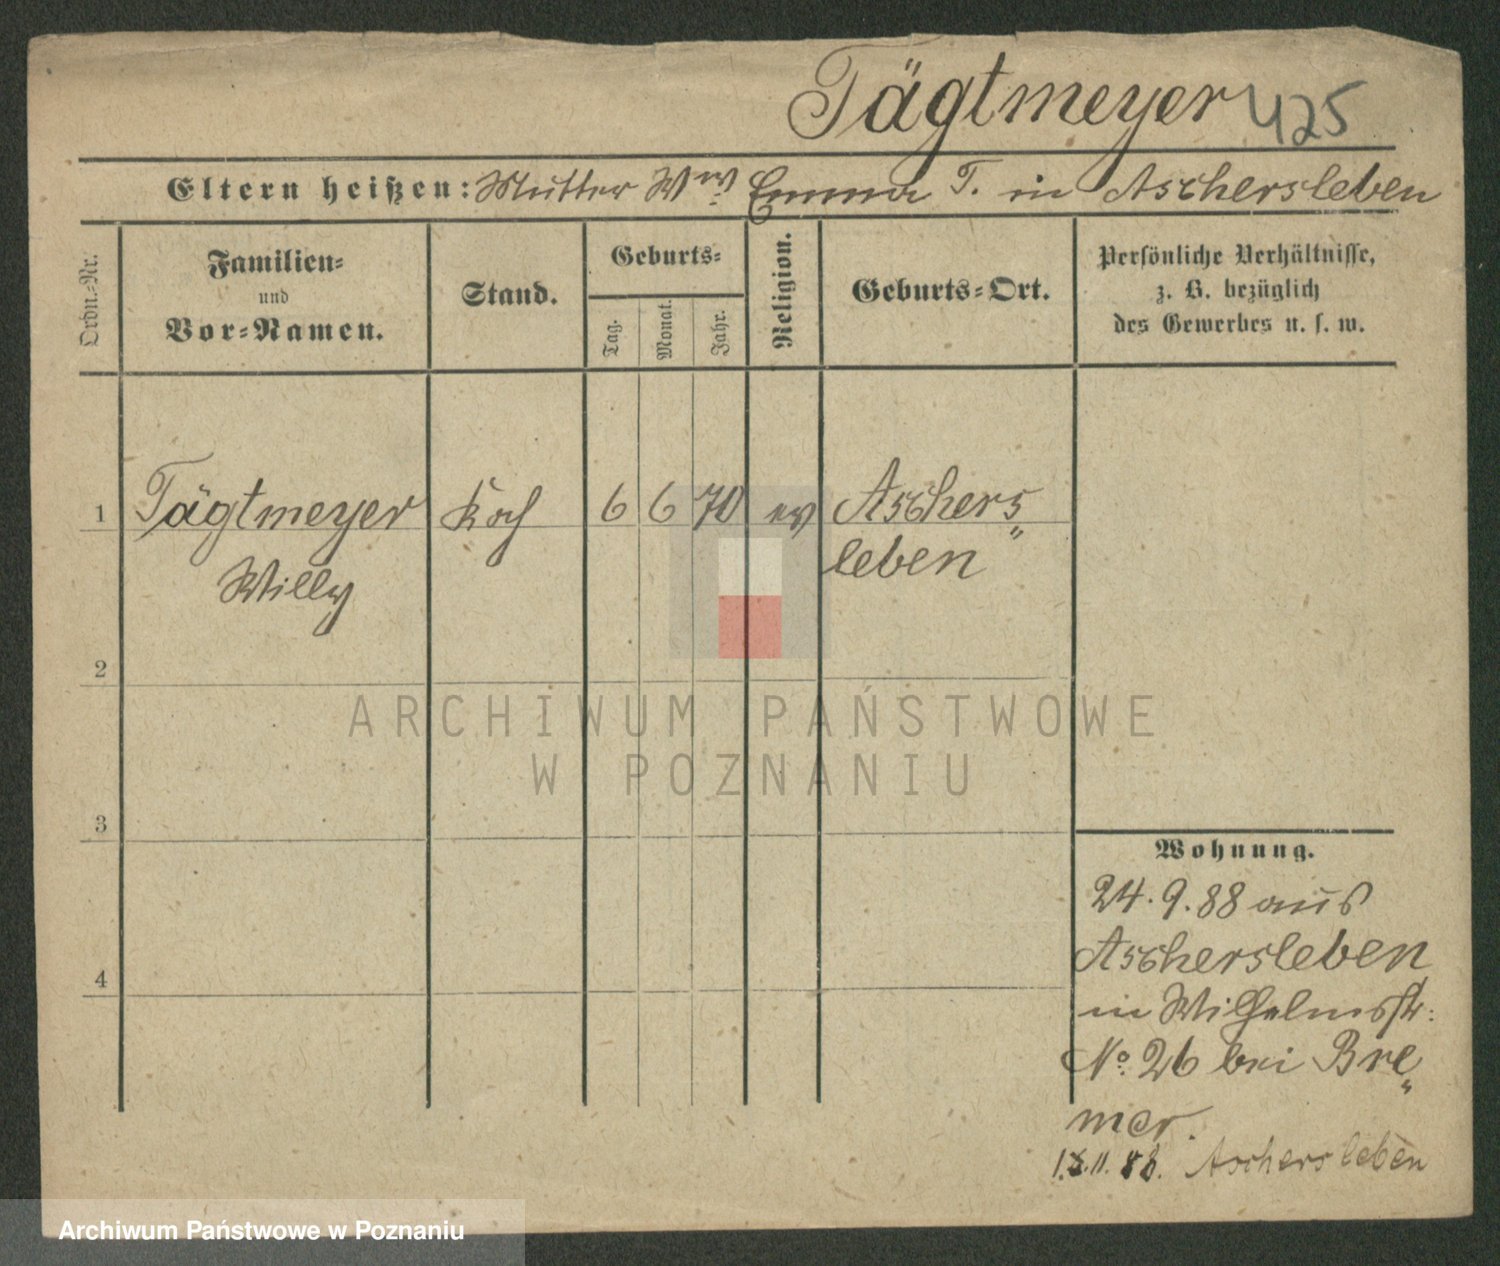 Tägtmeyer 425
Eltern heißen: Mutter Wwe Emma T. in Aschersleben
Ordn.-Nr.
Familien-
und
Vor-Namen.
Stand.
Geburts-
Tag.
Monat.
Jahr.
Religion.
Geburts-Ort.
Persönliche Verhältnisse,
z. B. bezüglich
des Gewerbes u. s. w.
1 Tägtmeyer Koch 6 6 70 ev Aschers„
Willy leben
2
ARCHIWUM PAŃSTWOWE
W POZNANIU
3
Wohnung.
24. 9. 88 aus
Aschersleben
4
in Wilhelmsstr:
No. 26 bei Bre„
mer.
11. 88. Aschersleben
Archiwum Państwowe w Poznaniu